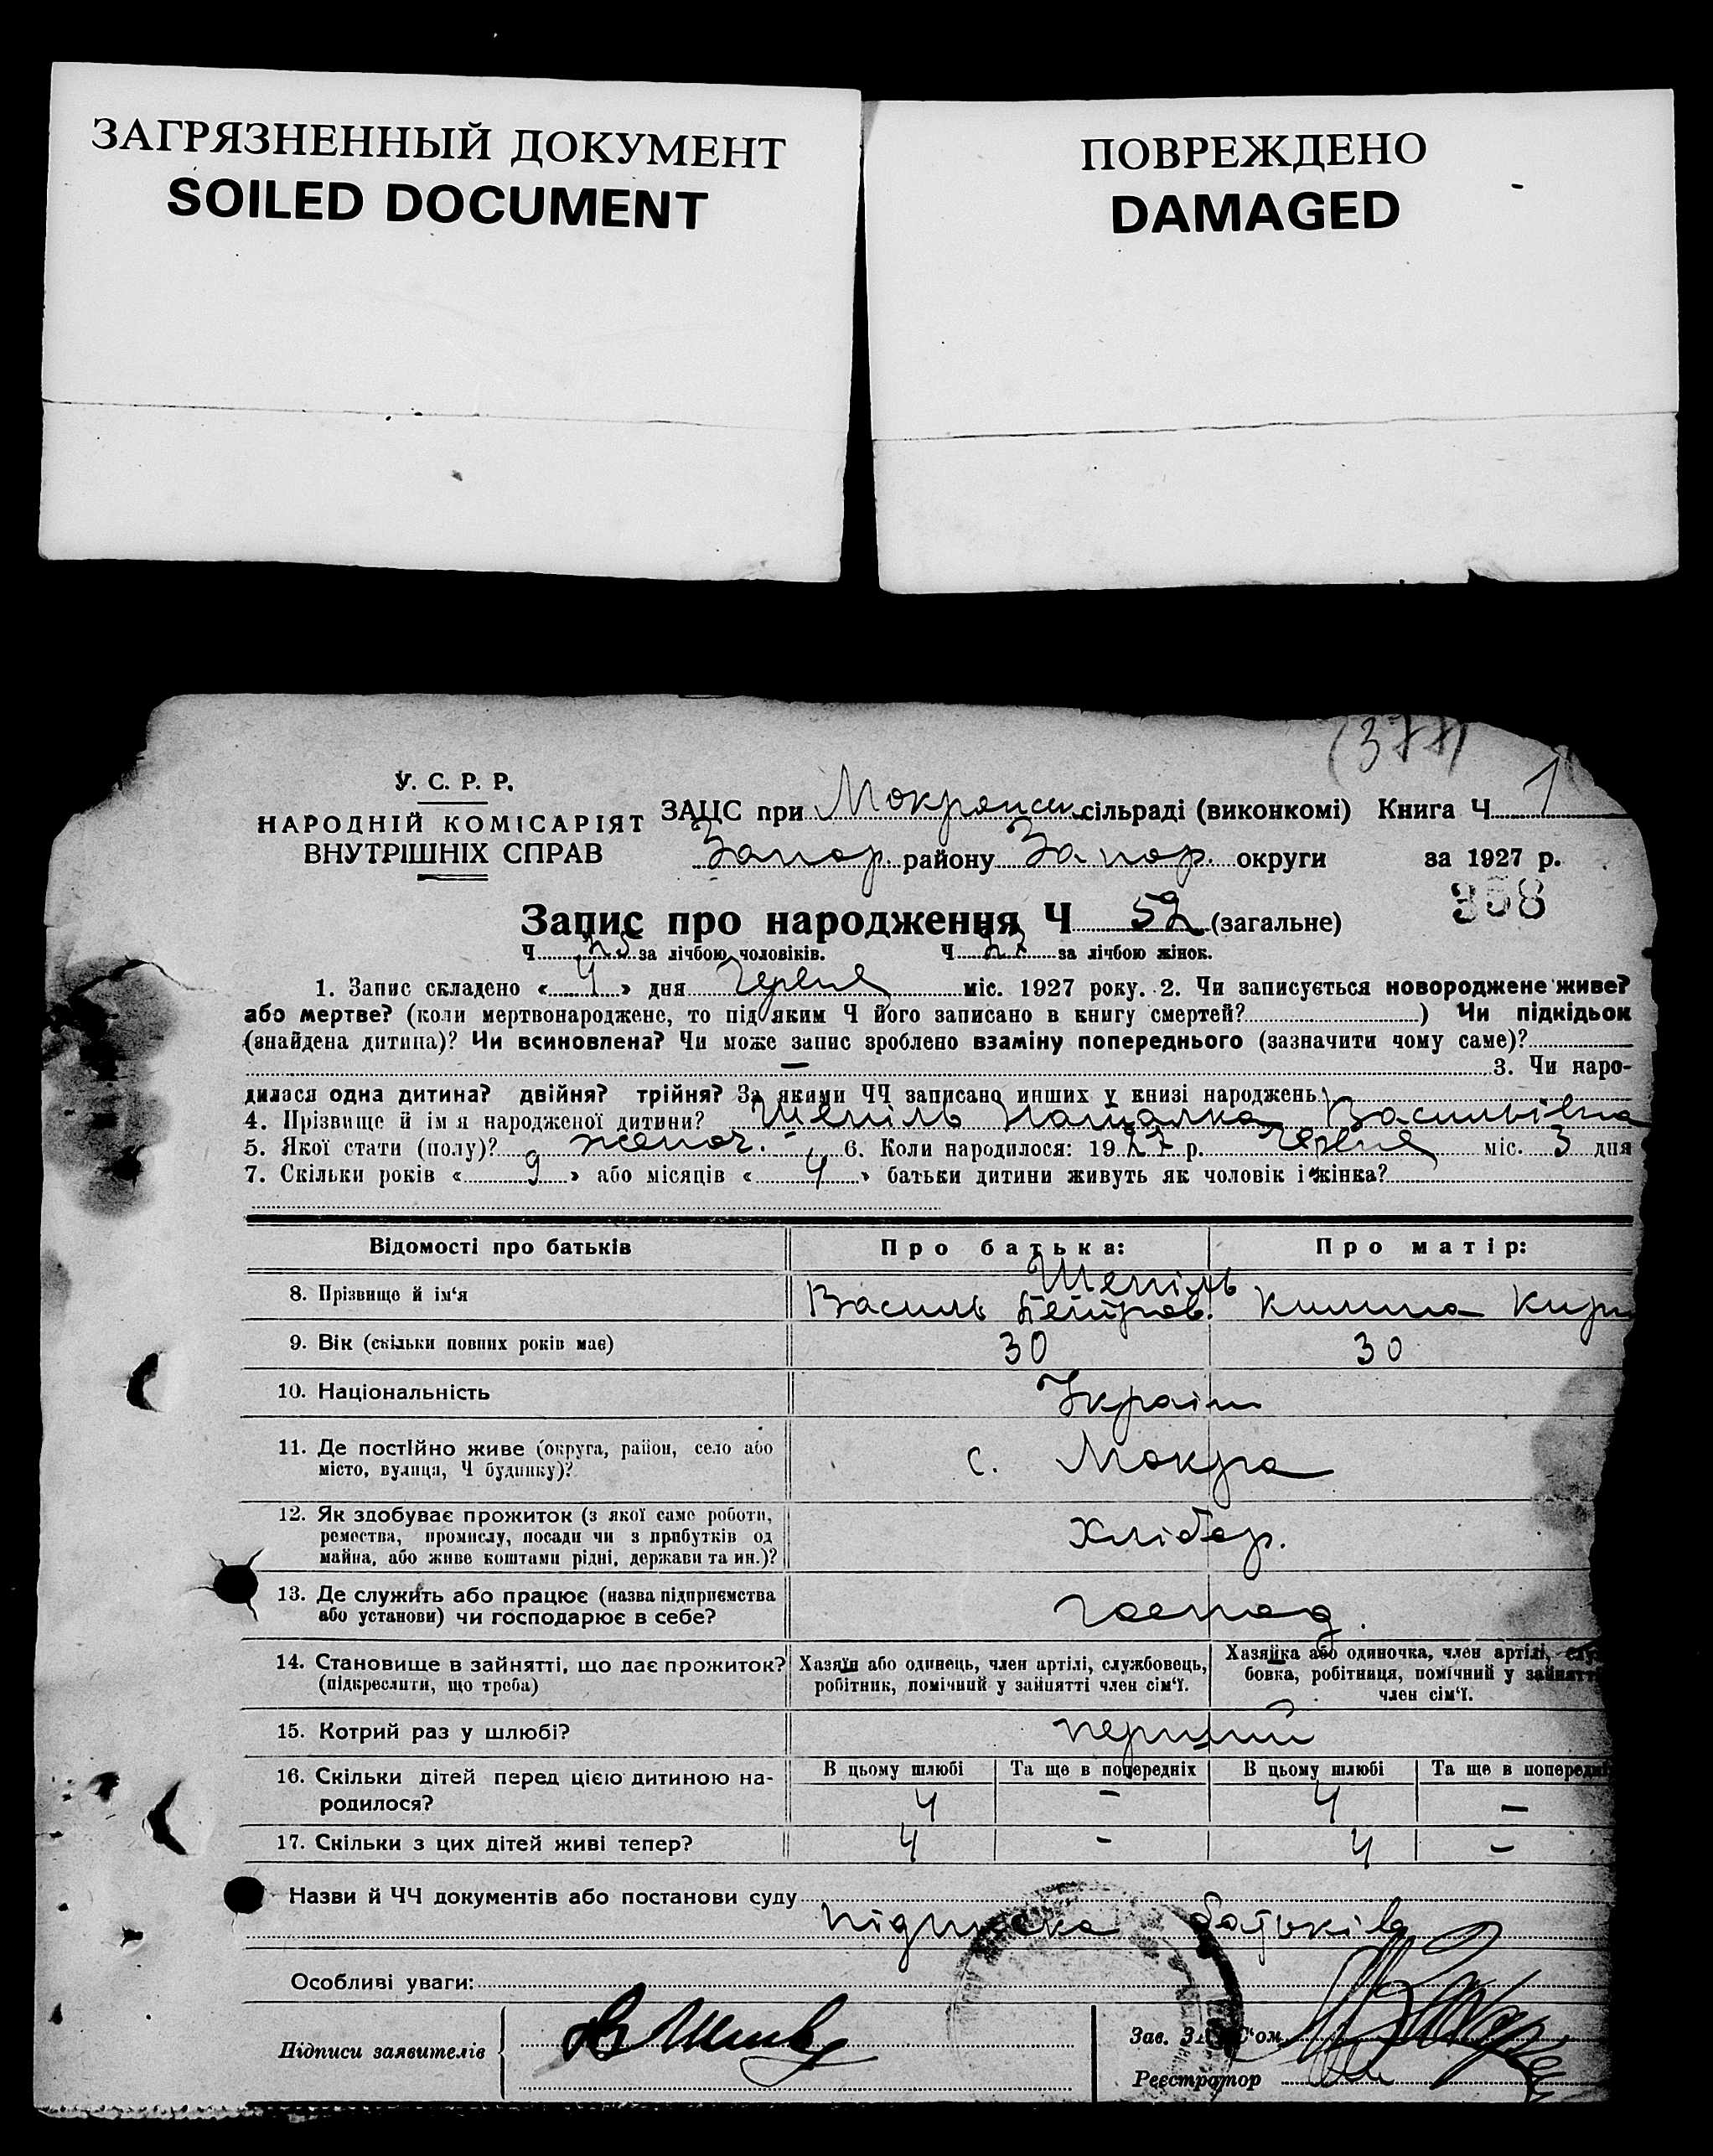 ЗАГРЯЗНЕННЫЙ ДОКУМЕНТ
SOILED DOCUMENT
ПОВРЕЖДЕНО
DAMAGED
(377)
У. С. Р. Р.
НАРОДНІЙ КОМІСАРІЯТ
ВНУТРІШНІХ СПРАВ
ЗАЦС при Мокрянск сільраді (виконкомі) Книга Ч 1
Запор. району Запор. округи за 1927 р.
358
Запис про народження Ч 52 (загальне)
Ч за лічбою чоловіків. Ч за лічбою жінок.
1. Запис складено « 4 » дня Червня міс. 1927 року. 2. Чи записується новороджене живе?
або мертве? (коли мертвонароджене, то під яким Ч його записано в книгу смертей? ) Чи підкідьок
(знайдена дитина)? Чи всиновлена? Чи може запис зроблено взаміну попереднього (зазначити чому саме)?
— 3. Чи наро-
дилася одна дитина? двійня? трійня? За якими ЧЧ записано инших у книзі народжень
4. Прізвище й ім я народженої дитини? Шепіль Наталка Васильівна
5. Якої стати (полу)? жіноч. 6. Коли народилося: 1927 р. Червня міс. 3 дня
7. Скільки років « 9 » або місяців « 4 » батьки дитини живуть як чоловік і жінка?
Відомості про батьків Про батька: Про матір:
Шепіль
8. Прізвище й ім‘я Василь Петров. Килина Кири
9. Вік (скільки повних років має) 30 30
10. Національність Україн
11. Де постійно живе (округа, район, село або
місто, вулиця, Ч будинку)? с. Мокра
12. Як здобуває прожиток (з якої саме роботи,
ремества, промислу, посади чи з прибутків од
майна, або живе коштами рідні, держави та ин.)? Хлібор.
13. Де служить або працює (назва підприємства
або установи) чи господарює в себе? господ.
14. Становище в зайнятті, що дає прожиток?
(підкреслити, що треба)
Хазяїн або одинець, член артілі, службовець,
робітник, помічний у зайнятті член сім‘ї.
Хазяйка або одиночка, член артілі, служ
бовка, робітниця, помічний у зайнятті
член сім‘ї.
15. Котрий раз у шлюбі? перший
В цьому шлюбі Та ще в попередніх В цьому шлюбі Та ще в попередні
16. Скільки дітей перед цією дитиною на-
родилося? 4 — 4 —
17. Скільки з цих дітей живі тепер? 4 - 4 —
Назви й ЧЧ документів або постанови суду
підписка батьків
Особливі уваги:
Підписи заявителів
Зав. ЗАЦС‘ом
Реєстратор